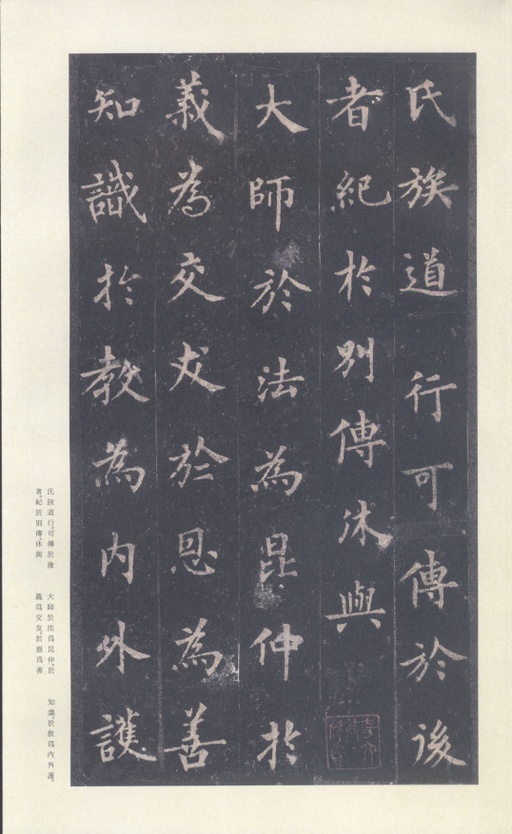 氏族道行可傳於後
者紀於別傳休與
大師於法為昆仲於
義為交友於恩為善
知識於教為內外護
氏族道行可傳於後
者紀於別傳休與
大師於法為昆仲於
義為交友於恩為善
知識於教為內外護